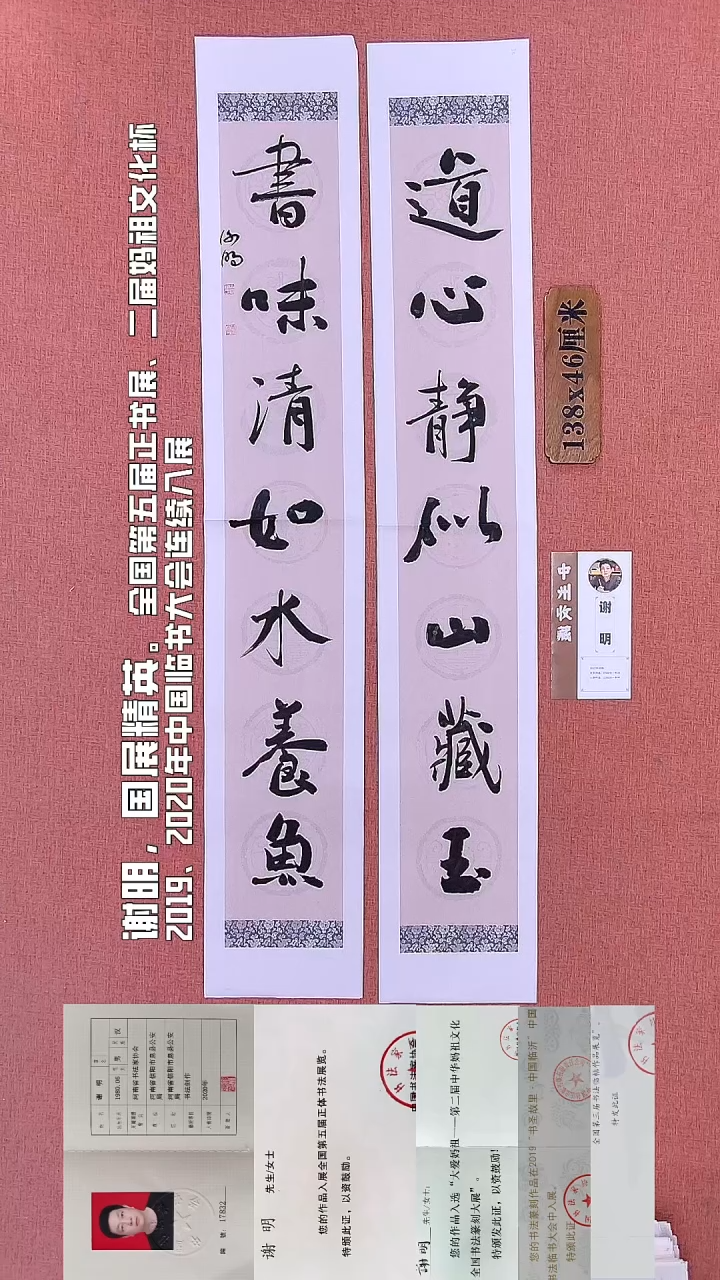 道心静似山藏玉
書味清如水養魚
谢明
谢明，国展精英。全国第五届正书展、二届妈祖文化杯
2019、2020年中国临书大会连续八展
138x46厘米
谢 明
1980.06
男
汉
河南省书法家协会
河南省信阳市息县公安局
河南省信阳市息县公安局
书法创作
2020年
编 号: 17832
谢 明 先生/女士
您的作品入展全国第五届正体书法展览。
特颁此证，以资鼓励。
谢明 先生/女士:
您的作品入选“大爱妈祖——第二届中华妈祖文化
全国书法篆刻大展”。
特颁发此证，以资鼓励!
您的书法篆刻作品在2019“书圣故里·中国临沂”中国
书法临书大会中入展。
特颁此证
全国第三届书法临帖作品展览”。
特发此证